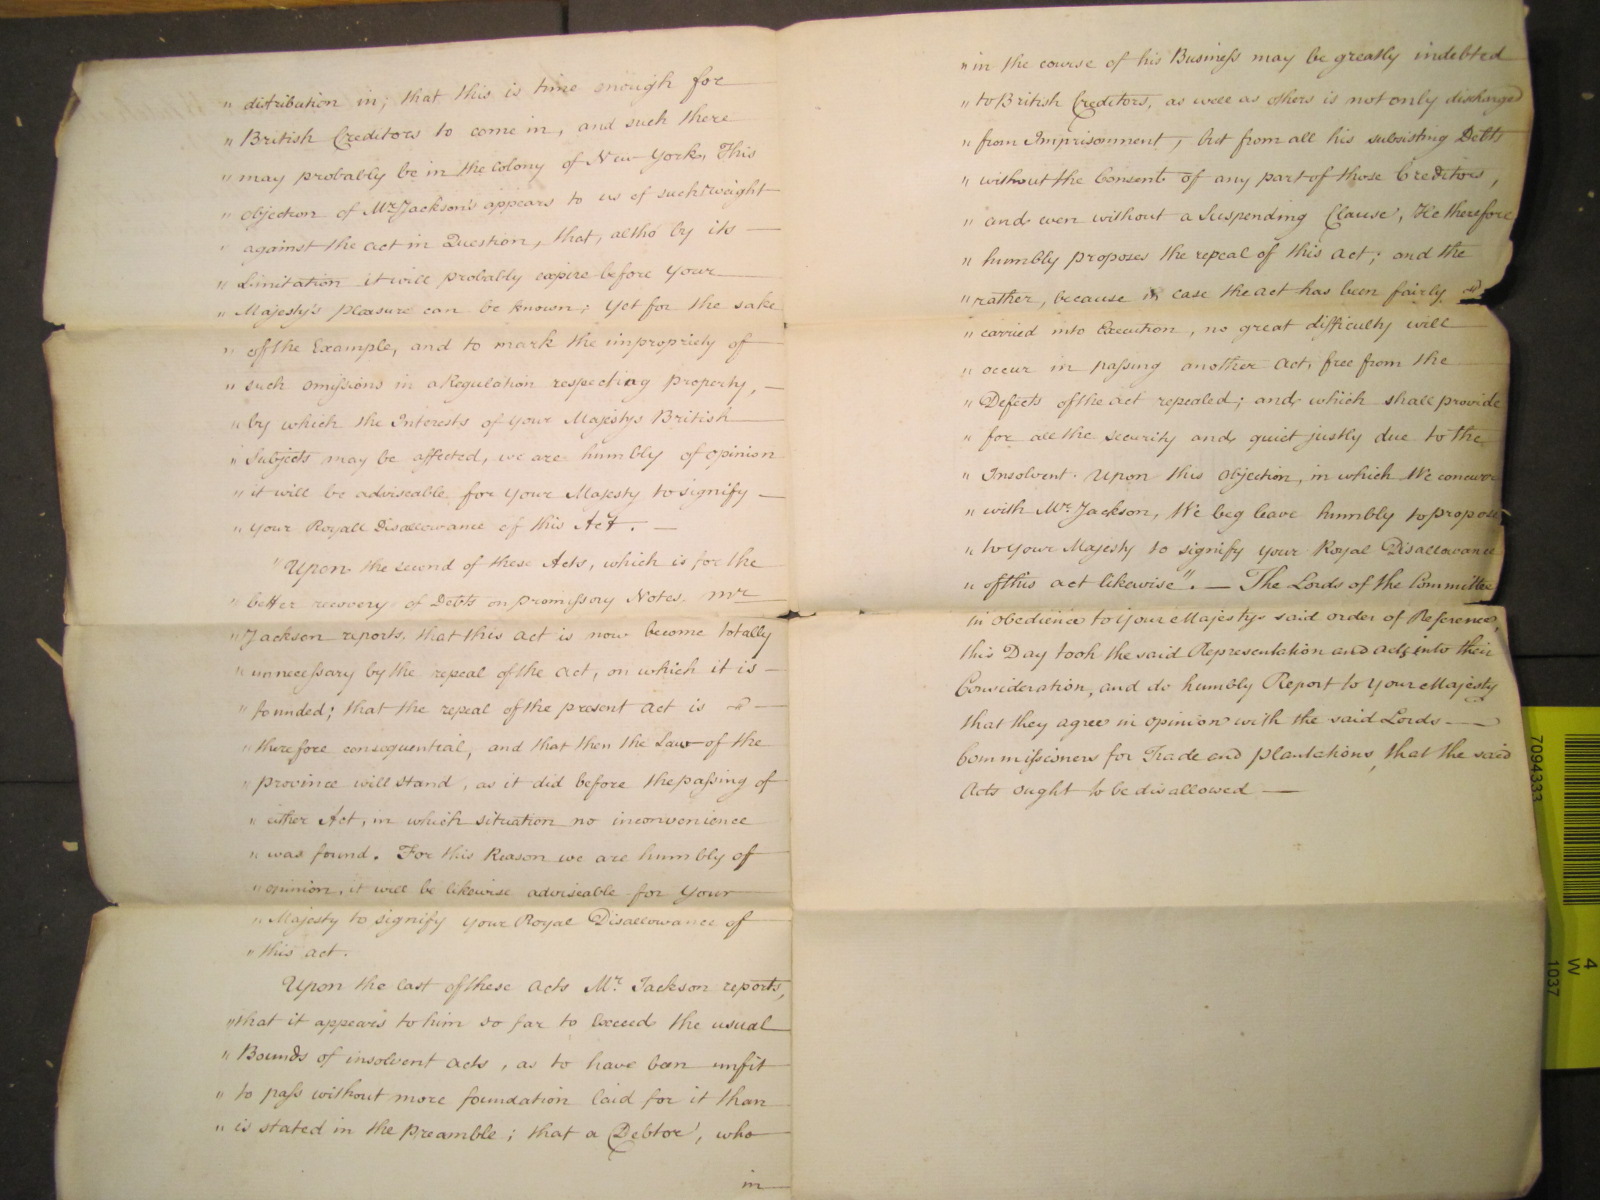 " distribution in; that this is time enough for
" British Creditors to come in, and such there
" may probably be in the Colony of New-York, This
" objection of Mr. Jackson's appears to us of such weight
" against the act in Question, that, altho' by its —
" Limitation it will probably expire before Your
" Majesty's pleasure can be known; Yet for the sake
" of the Example, and to mark the impropriety of
" such omissions in a Regulation respecting property, —
" by which the Interests of your Majestys British
" Subjects may be affected, we are humbly of opinion
" it will be adviseable for your Majesty to signify —
" your Royall Disallowance of this Act. —
" Upon the second of these Acts, which is for the
" better recovery of Debts on promissory Notes. Mr
" Jackson reports, that this act is now become totally
" unnecessary by the repeal of the Act, on which it is —
" founded; that the repeal of the present Act is —
" therefore consequential, and that then the Law of the
" province will stand, as it did before the passing of
" either Act, in which situation no inconvenience
" was found. For this Reason we are humbly of
" opinion, it will be likewise adviseable for Your
" Majesty to signify your Royal Disallowance of
" this act.
Upon the last of these Acts Mr. Jackson reports,
" that it appears to him so far to Exceed the usual
" Bounds of insolvent acts, as to have been unfit
" to pass without more foundation laid for it than
" is stated in the preamble; that a Debtor, who
in
" in the course of his Business may be greatly indebted
" to British Creditors, as well as others is not only discharged
" from Imprisonment, but from all his subsisting Debts
" without the Consent of any part of those Creditors,
" and even without a Suspending Clause, He therefore
" humbly proposes the repeal of this Act; and the
" rather, because in case the Act has been fairly
" carried into Execution, no great difficulty will
" occur in passing another Act, free from the
" Defects of the act repealed; and which shall provide
" for all the security and quiet justly due to the
" Insolvent. Upon this Objection, in which We concurr
" with Mr. Jackson, We beg leave humbly to propose
" to your Majesty to signify your Royal Disallowance
" of this act likewise". — The Lords of the Committee
in obedience to Your Majestys said order of Reference,
this Day took the said Representation and acts into their
Consideration, and do humbly Report to Your Majesty
that they agree in opinion with the said Lords —
Commissioners for Trade and plantations, that the said
Acts ought to be disallowed —
7094333
4
W
1037